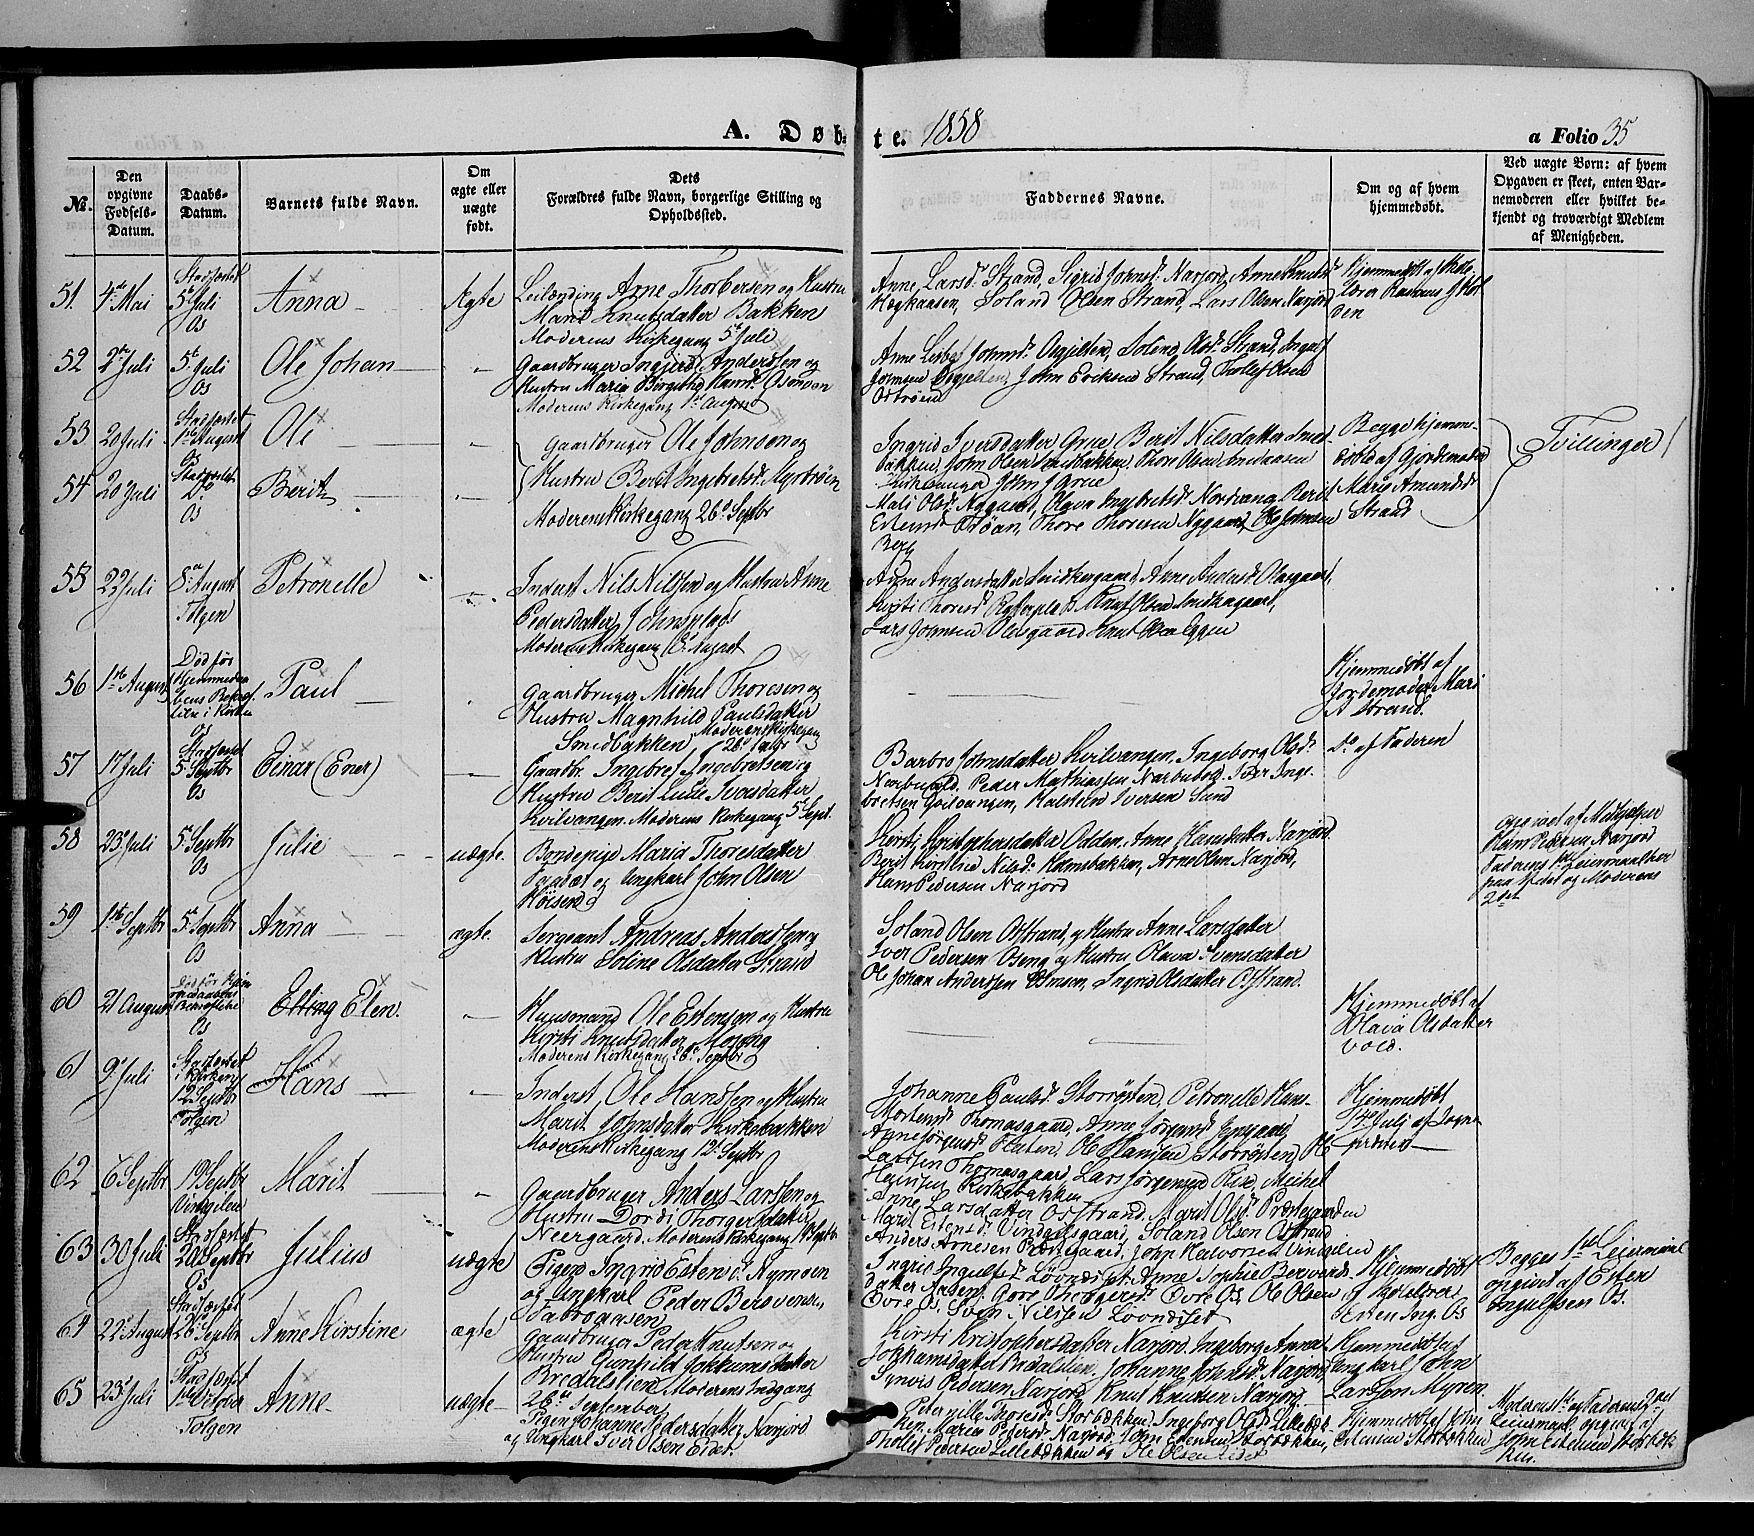 A. Døb-
te. 1858
a Folio 35
№.
Den
opgivne
Fødsels-
Datum.
Daabs-
Datum.
Barnets fulde Navn.
Om
ægte eller
uægte
født.
Dets
Forældres fulde Navn, borgerlige Stilling og
Opholdssted.
Faddernes Navne.
Om og af hvem
hjemmedøbt.
Ved uægte Børn: af hvem
Opgaven er skeet, enten Bar-
nemoderen eller hvilket be-
kjendt og troværdigt Medlem
af Menigheden.
51. 4de Mai
Stadfæstet
5te Juli
Os
Anna
Ægte
Leilænding Arne Thorbersen og Hustru
Marit Knutsdatter Bakken
Moderens Kirkegang 5te Juli
Anne Larsd. Strand, Sigrid Johnsd. Narjord, Anne Knutsd.
Soland Olsen Strand, Lars Olsen Narjord
Hjemmedøbt af
52 2den Juli
5te Juli
Os
Ole Johan
Gaardbruger Ingjerd Anderssen og
Hustru Maria Birgithe
Moderens Kirkegang 1ste August
Johnsd. Strand,
Johnsen John Eriksen Strand, Tollef Olsen
53 20 Juli
Stadfæstet
1ste August
Os
Ole
Gaardbruger Ole Johnsen og
Hustru Berit Ingebretsd. Myrtrøen
Moderens Kirkegang 26de Septbr
Ingrid Iversdatter Grue, Berit Nilsdatter Smed-
bakken, John Olsen Smedbakken, Thore Olsen
Kirkesanger John J Grue
Begge hjemme-
døbte af Gjordemoder
Marie Amundsd.
Strand
Tvillinger
54 20 Juli
Stadfæstet
Do.
Os
Berit
Mali Olsd. Nygaard, Olava Ingebretsd. Nordvang, Berit
Estensd. Thore Thoresen Nygaard, Ole Johnsen
Berg
55 22 Juli
8de August
Tolgen
Petronelle
Inderst Nils Nilssen og Hustru Anne
Pedersdatter
Moderens Kirkegang 8de August
Anne Andersdatter Anne Andersd. Olesgaard,
Kirsti Thoresd. Knut Olsen
Lars Johnsen Olesgaard Knut Olsen Eggen
56 1ste August
Død før
Hjemmedaa-
bens Bekræf-
telse i Kirken
Os
Paul
Gaardbruger Michel Thoresen og
Hustru Magnhild Paulsdatter
Smedbakken Moderens Kirkegang
26de Septbr
Hjemmedøbt af
Jordemoder Mari
A Strand.
57 17 Juli
Stadfæstet
5te Septbr
Os
Einar (Ener)
Gaardbr. Ingebret Ingebretsen og
Hustru Berit Lucie Iversdatter
Kvilvangen. Moderens Kirkegang 5te Sept.
Barbro Johnsdatter Kvilvangen, Ingeborg Olsd.
Narbuvold, Peder Mathiassen Narbuvold, Peder Inge-
bretsen Kvilvangen, Halsten Iversen Sund
Do af Faderen
58 23de Juli
5te Septbr
Os
Julie
uægte
Bondepige Maria Thoresdatter
og Ungkarl John Olsen
Kirsti Kristophersdatter Odden, Anne Hansdatter Narjord
Berit Kirstine Nilsd. Hansbakken, Arne Olsen Narjord,
Hans Pedersen Narjord
opgivet af
Hans Pedersen Narjord
Faderens 1ste Leiermaal
og Moderens
2det
59 1ste Septbr
5te Septbr
Os
Anna
ægte.
Sergeant Andreas Anderssen og
Hustru Eline Olsdatter Strand
Soland Olsen Osstrand, og Hustru Anne Larsdatter
Iver Pedersen Oseng og Hustru Olava Svensdatter
Ole Johan Anderssen Ingrid Olsdatter Osstrand.
60 21 August
Død før Hjem-
medaabens
Bekræftelse
Os
Elling Elen.
Huusmand Ole Estensen og Hustru
Kirsti Knutsdatter Moseng
Moderens Kirkegang 26de Septbr
Hjemmedøbt af
Olava Olsdatter
Vold.
61 9de Juli
Stadfæstet
i Kirken
12 Septbr
Tolgen
Hans
Inderst Ole Hanssen og Hustru
Marit Johnsdatter Kirkebakken
Moderens Kirkegang 12te Septbr
Johanne Paulsd. Storrøsten, Petronelle Hans-
Mortensd. Thomasgaard, Anne Jørgensd. Engaard,
Anne Jørgensd. Ole Hansen Storrøsten, Ole
Larssen Thomasgaard, Lars Jørgensen Michel
Kirkebakken
Hjemmedøbt
14de Juli af Sogne-
præsten
62 6 Septbr
19 Septbr
Vingelen
Marit
Gaardbruger Anders Larssen og
Hustru Dordi Thorgersdatter
Neergaard, Moderens Kirkegang
Anne Larsdatter Osstrand, Marit Olsd. Præstgaarden
Marit Estensd. Vingelsgaard, Soland Olsen Osstrand
Anders Arnesen Præstgaard, John Halvorsen Vingelen
63 30 Juli
Stadfæstet
20de Septbr
Os
Julius
uægte
Pigen Ingrid Estensd. Nymoen
og Ungkarl Peder
Ingrid Ingulfsd. Løvndset, Anne Sophie
Øvre Os, Ole Olsen
Øvre Os, Sven Nilssen Løvndset
Hjemmedøbt
af
Esten Ing. Os
Begges 1ste Leiermaal
opgivet af Esten
Ingulfsen Os.
64 22de August
Stadfæstet
26de Septbr
Os
Anne Kirstine
ægte
Gaardbruger Peder Knutsen og
Hustru Gunhild Jokkumsdatter
Bredalslien, Moderens Indgang
26de September
Kirsti Kristophersdatter Narjord, Ingeborg Anna
Jokkumsdatter Bredalslien, Johanne Johnsd. Narjord,
Pedersen Narjord, Knut Knutsen Narjord
Hjemmedøbt af
Ungkarl John
Larssen Myren.
65 23de Juli
Stadfæstet
October
Tolgen
Anne
uægte
Pigen Johanne Pedersdatter Narjord
og Ungkarl Iver Olsen Eidet.
Peternille Thoresd. Storbækken, Ingeborg Olsd. Lillebæk-
ken, Maria Pedersd. Narjord, John Estensen Storbækken,
Tollef Pedersen Lillebækken og Ole Olsen Eidet
Hjemmedøbt af John
Estensen Storbækken
Moderens 1ste og Faderens 2det
Leiermaal, opgivet af
John Estensen Storbæk-
ken.